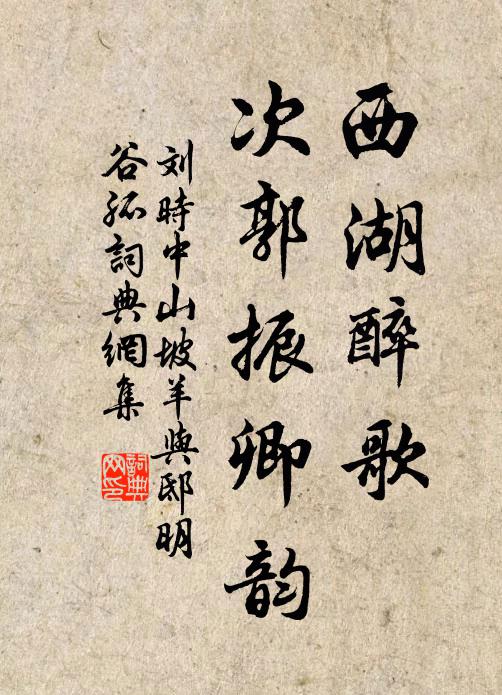 西湖醉歌
次郭振卿韵
刘時中山坡羊與邸明
谷孤詞典網集
詞典網印